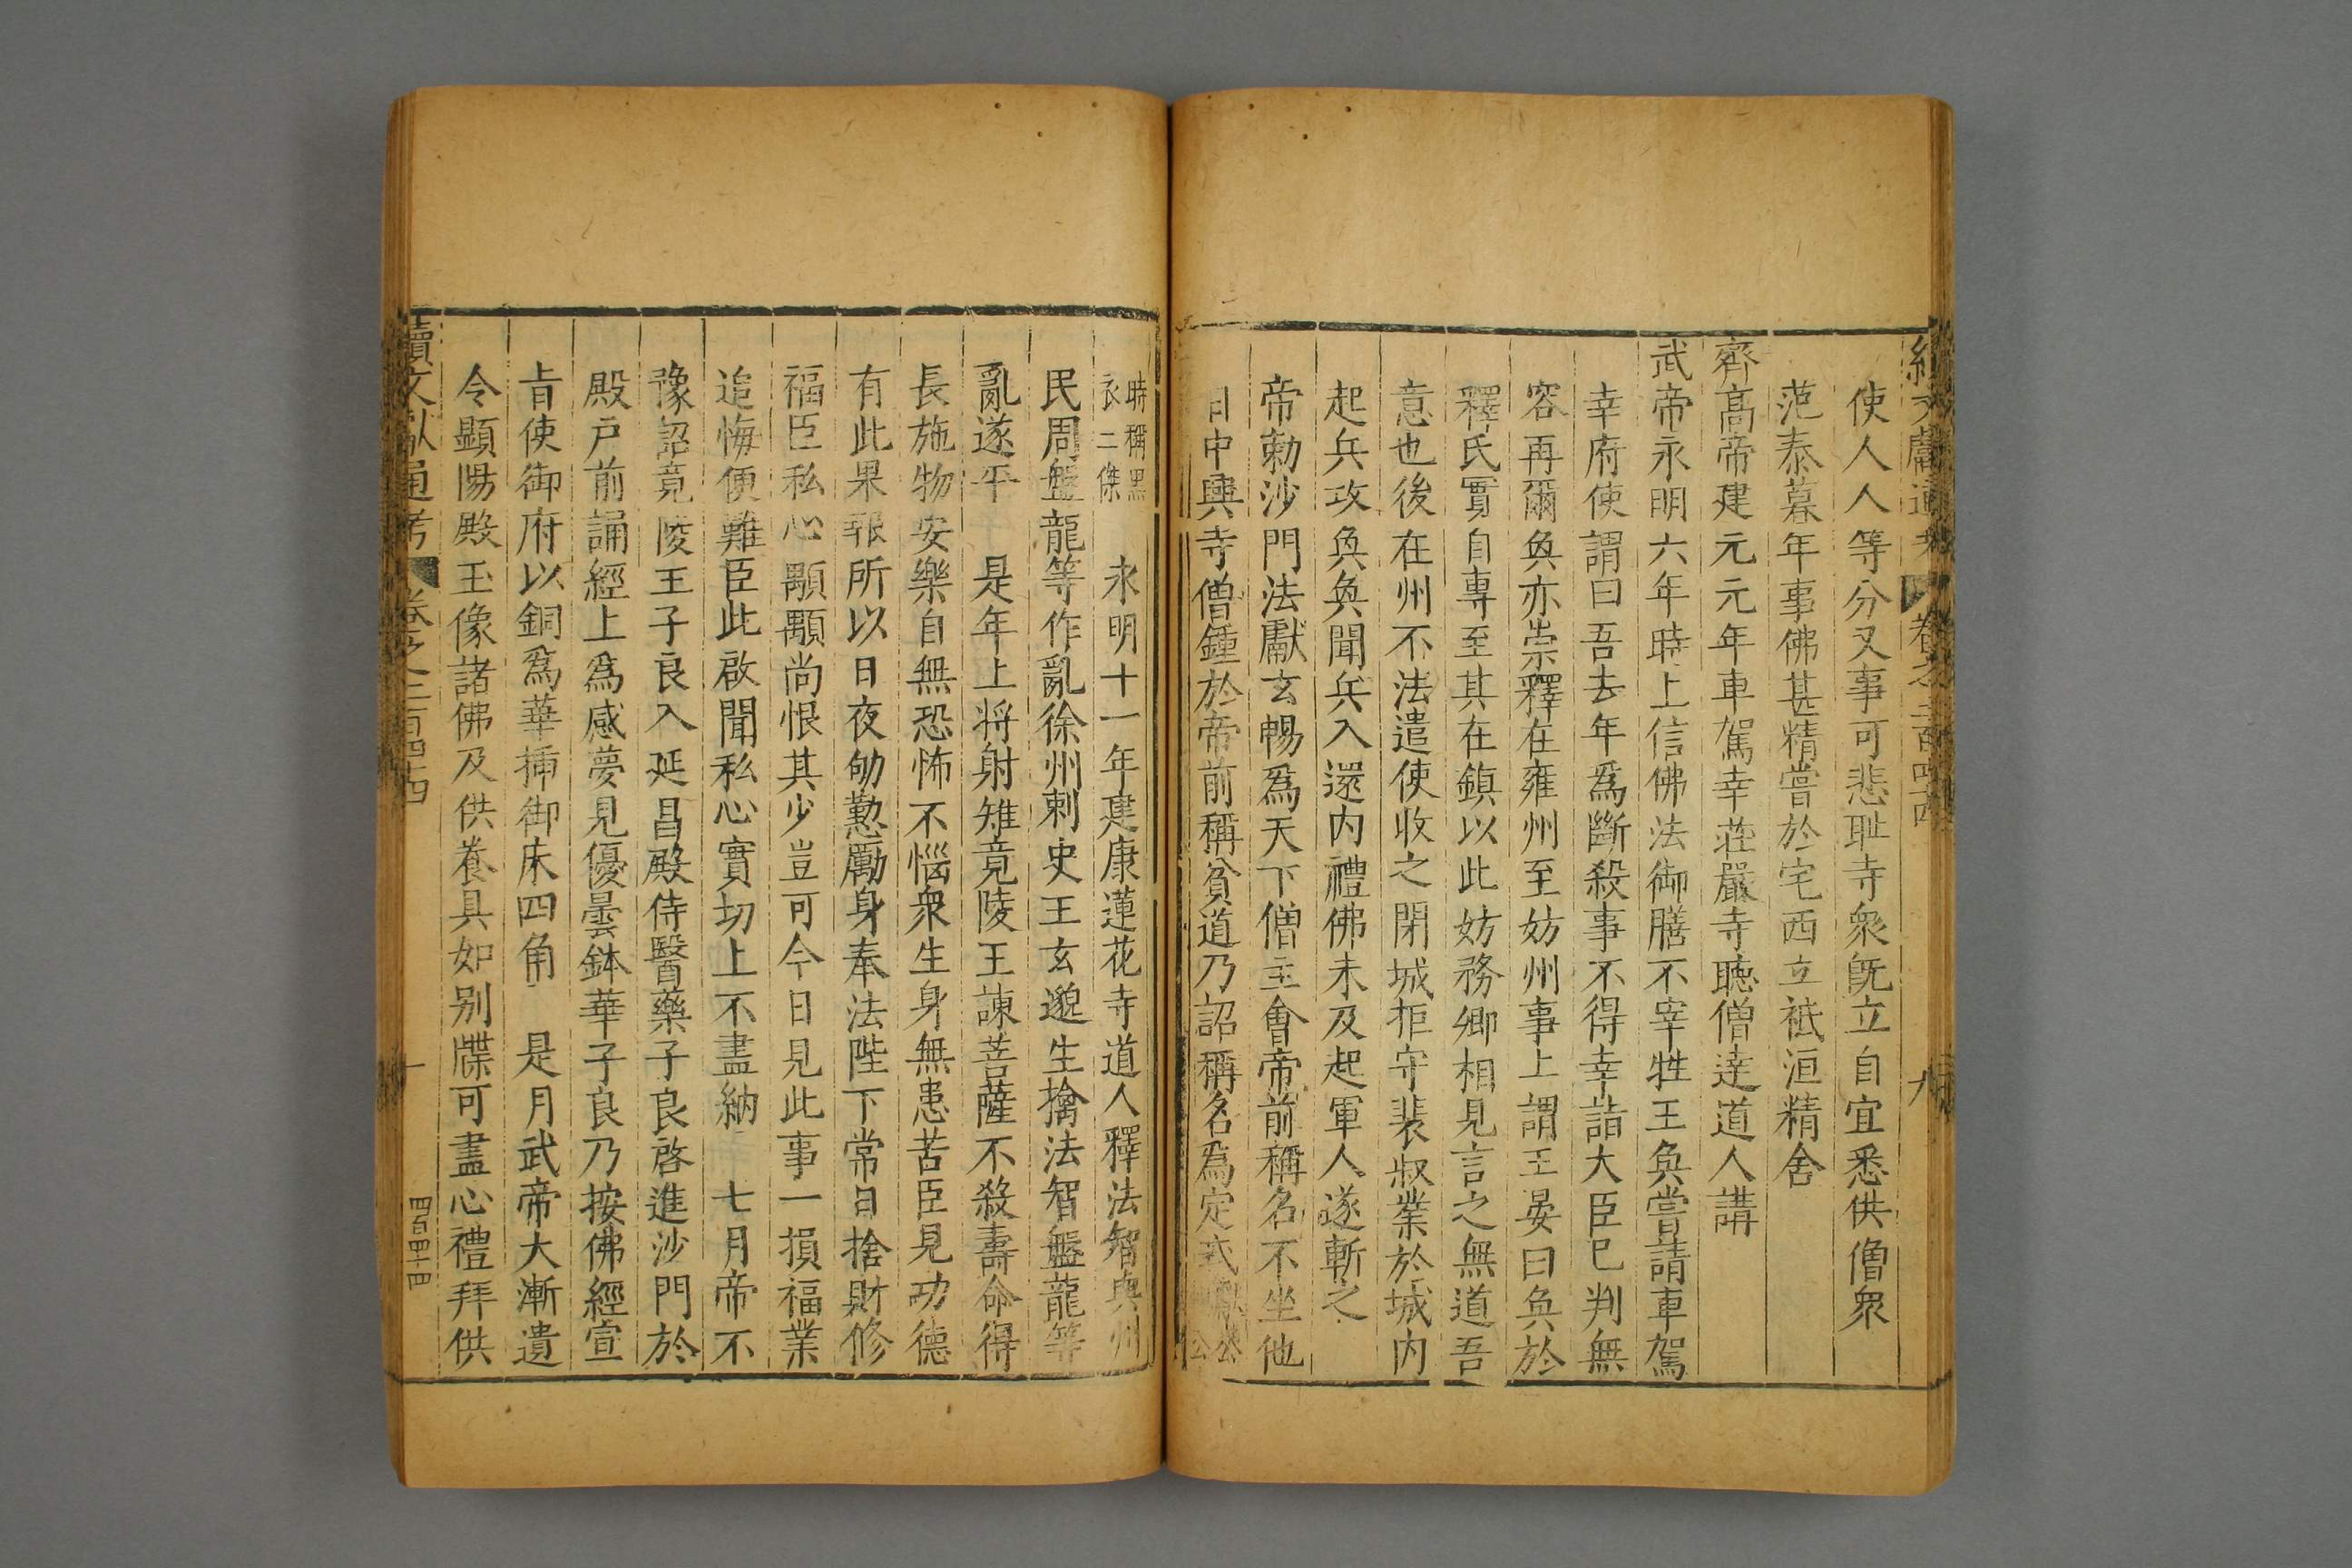 續文獻通考 卷之二百四十四 九
使人人等分又事可悲耻寺衆旣立自宜悉供僧衆
范泰暮年事佛甚精嘗於宅西立祗洹精舍
齊高帝建元元年車駕幸莊嚴寺聴僧達道人講
武帝永明六年時上信佛法御膳不宰牲王奐嘗請車駕
幸府使謂曰吾去年爲斷殺事不得幸詣大臣已判無
容再爾奐亦崇釋在雍州至妨州事上謂王晏曰奐於
釋氏實自專至其在鎮以此妨務卿相見言之無道吾
意也後在州不法遣使收之閉城拒守裴叔業於城内
起兵攻奐奐聞兵入還内禮佛未及起軍人遂斬之
帝勅沙門法獻玄暢爲天下僧主會帝前稱名不坐他
日中興寺僧鍾於帝前稱貧道乃詔稱名爲定式
時稱黑
衣二傑
永明十一年建康蓮花寺道人釋法智與州
民周盤龍等作亂徐州刺史王玄邈生擒法智盤龍等
亂遂平 是年上將射雉竟陵王諫菩薩不殺壽命得
長施物安樂自無恐怖不惱衆生身無患苦臣見功德
有此果報所以日夜劬懃勵身奉法陛下常日捨財修
福臣私心顒顒尚恨其少豈可今日見此事一損福業
追悔便難臣此啟聞私心實切上不盡納 七月帝不
豫詔竟陵王子良入延昌殿侍醫藥子良啓進沙門於
殿戸前誦經上爲感夢見優曇鉢華子良乃按佛經宣
旨使御府以銅爲華揷御床四角 是月武帝大漸遺
令顯陽殿玉像諸佛及供養具如别牒可盡心禮拜供
續文獻通考 卷之二百四十四 十
四百四十四